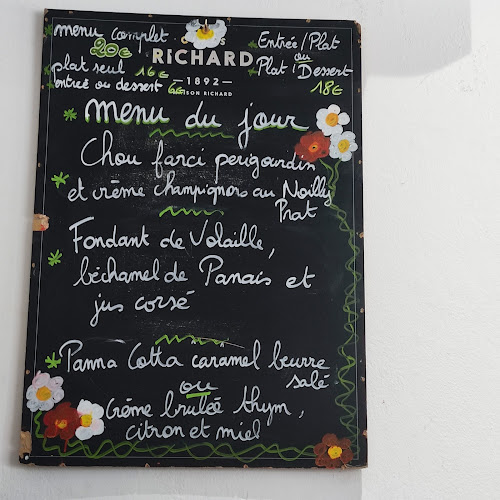 menu complet
20€
plat seul 16€
entrée ou dessert 6€
RICHARD
1892
MAISON RICHARD
Entrée/Plat
ou
Plat/Dessert
18€
menu du jour
Chou farci perigourdin
et crème champignons au Noilly
Prat
Fondant de Volaille,
béchamel de Panais et
jus corsé
Panna Cotta caramel beurre
salé
ou
Crème brulée thym,
citron et miel